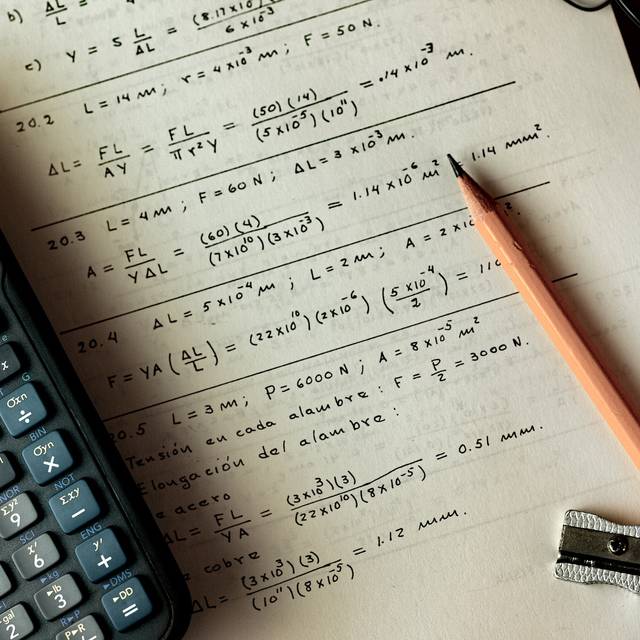 b) ΔL/L = (8.17×10 )/6×10⁻³
c) Y = S L/ΔL =
20.2 L = 14 m ; r = 4×10⁻³ m ; F = 50 N.
ΔL = FL/AY = FL/πr²Y = (50)(14)/(5×10⁻⁵)(10¹¹) = .14×10⁻³ m.
20.3 L = 4m ; F = 60 N ; ΔL = 3×10⁻³ m.
A = FL/YΔL = (60)(4)/(7×10¹⁰)(3×10⁻³) = 1.14×10⁻⁶ m² 1.14 mm².
20.4 ΔL = 5×10⁻⁴ m ; L = 2m ; A = 2×10
F = YA(ΔL/L) = (22×10¹⁰)(2×10⁻⁶)(5×10⁻⁴/2) =
20.5 L = 3m ; P = 6000 N ; A = 8×10⁻⁵ m²
Tensión en cada alambre : F = P/2 = 3000 N.
Elongación del alambre :
acero
ΔL = FL/YA = (3×10³)(3)/(22×10¹⁰)(8×10⁻⁵) = 0.51 mm.
cobre
ΔL = (3×10³)(3)/(10¹¹)(8×10⁻⁵) = 1.12 mm.
x
σxn
÷
BIN
σyn
×
Σxy
−
9
SCI
ENG
x!
6
y'
+
▸kg
▸lb
3
▸DMS
▸DD
=
gal
2
R▸P
P▸R